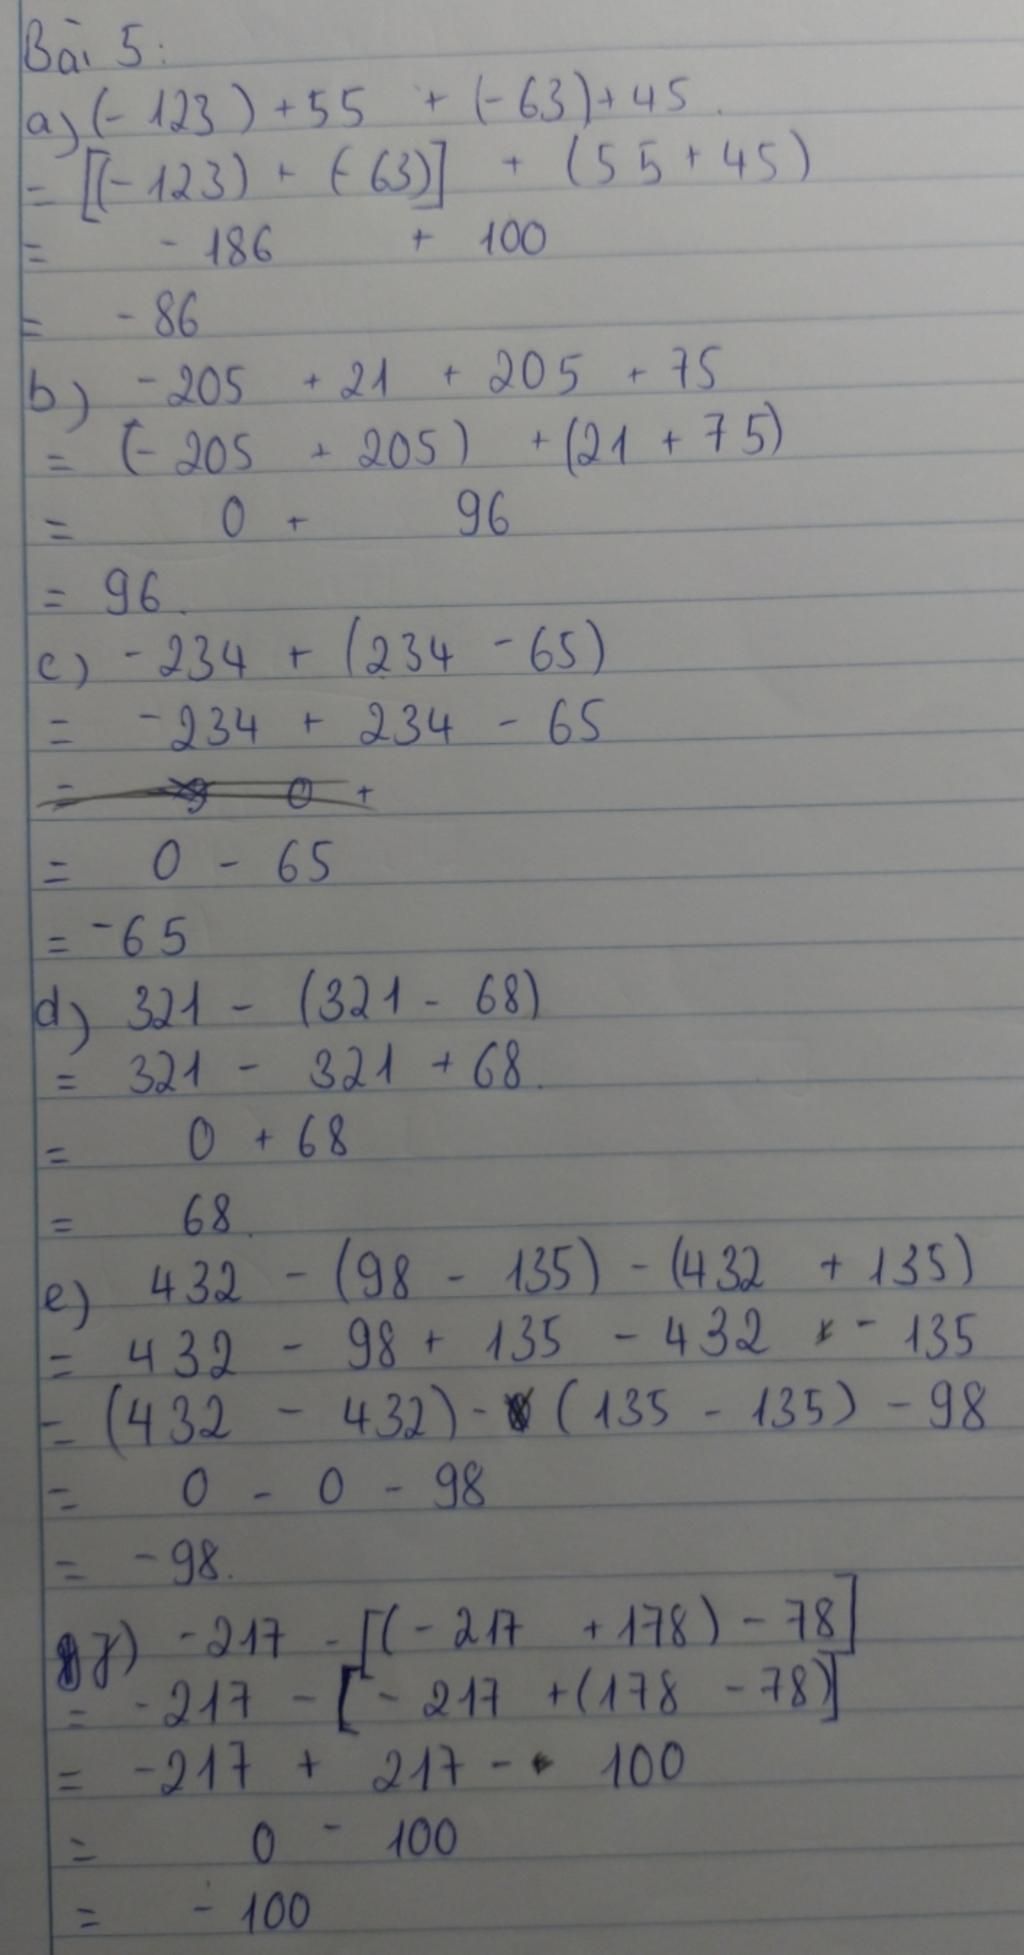 Bài 5:
a) (- 123) + 55 + (- 63) + 45.
= [(- 123) + (- 63)] + (55 + 45)
= - 186 + 100
= - 86
b) - 205 + 21 + 205 + 75
= (- 205 + 205) + (21 + 75)
= 0 + 96
= 96.
c) - 234 + (234 - 65)
= - 234 + 234 - 65
= 0 +
= 0 - 65
= - 65
d) 321 - (321 - 68)
= 321 - 321 + 68.
= 0 + 68
= 68.
e) 432 - (98 - 135) - (432 + 135)
= 432 - 98 + 135 - 432 - 135
= (432 - 432) - (135 - 135) - 98
= 0 - 0 - 98
= - 98.
) - 217 - [(- 217 + 178) - 78]
= - 217 - [- 217 + (178 - 78)]
= - 217 + 217 - 100
= 0 - 100
= - 100